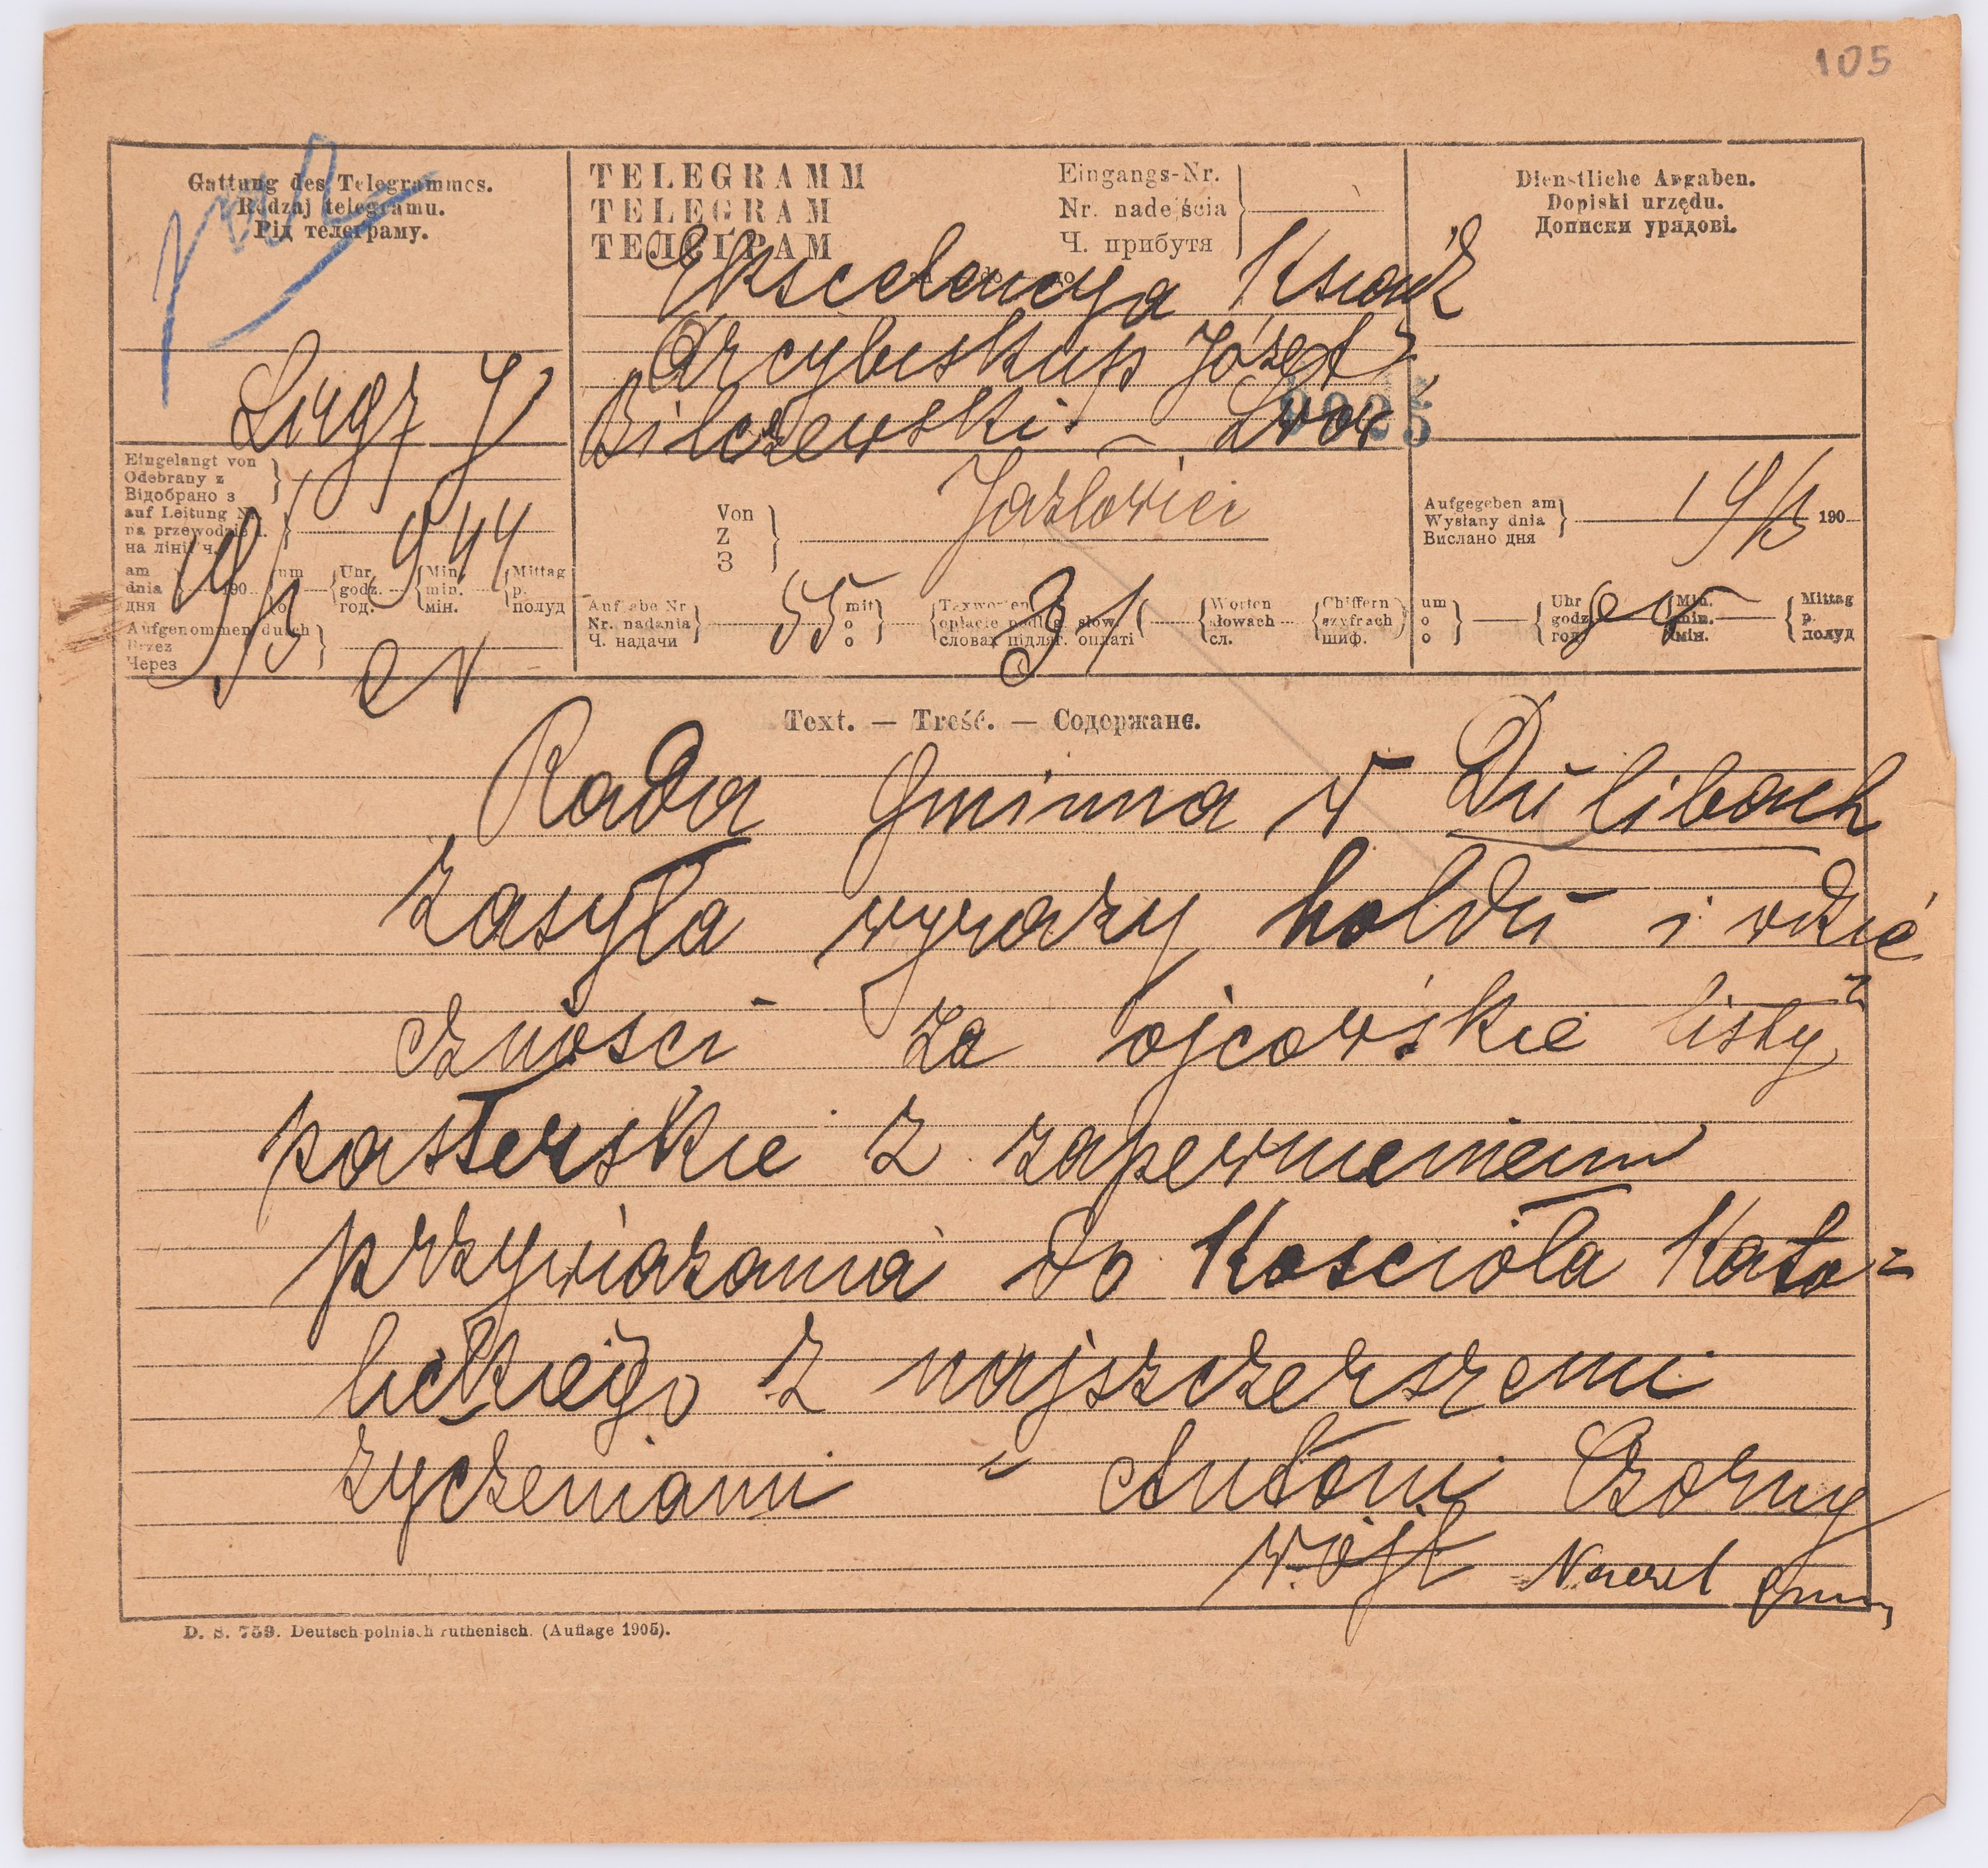 105
Gattung des Telegrammes.
Rodzaj telegramu.
Рід телєграму.
TELEGRAMM
TELEGRAM
ТЕЛЄҐРАМ
Eingangs-Nr.
Nr. nadejścia
Ч. прибутя
Dienstliche Angaben.
Dopiski urzędu.
Дописки урядові.
Ekscelencya Ksiądz
Arcybiskup Józef
Bilczewski - Lwów
9025
Eingelangt von
Odebrany z
Відобрано з
auf Leitung Nr.
na przewodzie l.
на лінії ч.
9 44
am
dnia
дня
19/3
190
um
o
Uhr
godz.
год.
Min.
min.
мін.
Mittag
p.
полуд
Aufgenommen durch
Przez
Через
Von
Z
З
Jazłowiec
Aufgegeben am
Wysłany dnia
Вислано дня
19/3 190
Aufgabe Nr.
Nr. nadania
Ч. надачи
55
mit
o
о
Taxworten
opłacie podleg. słow.
словах підляг. оплаті
31
Worten
słowach
сл.
Chiffern
szyfrach
шиф.
um
o
о
Uhr
godz.
год.
Min.
min.
мін.
Mittag
p.
полуд
Text. — Treść. — Содержанє.
Rada Gminna w Dulibach
zasyła wyrazy holdu i wdzię
czności za ojcowskie listy
pasterskie z zapewnieniem
przywiązania do Kościoła Kato=
lickiego z najszczerszemi
życzeniami - Antoni Czorny
wójt
D. S. 759. Deutsch-polnisch-ruthenisch. (Auflage 1905).